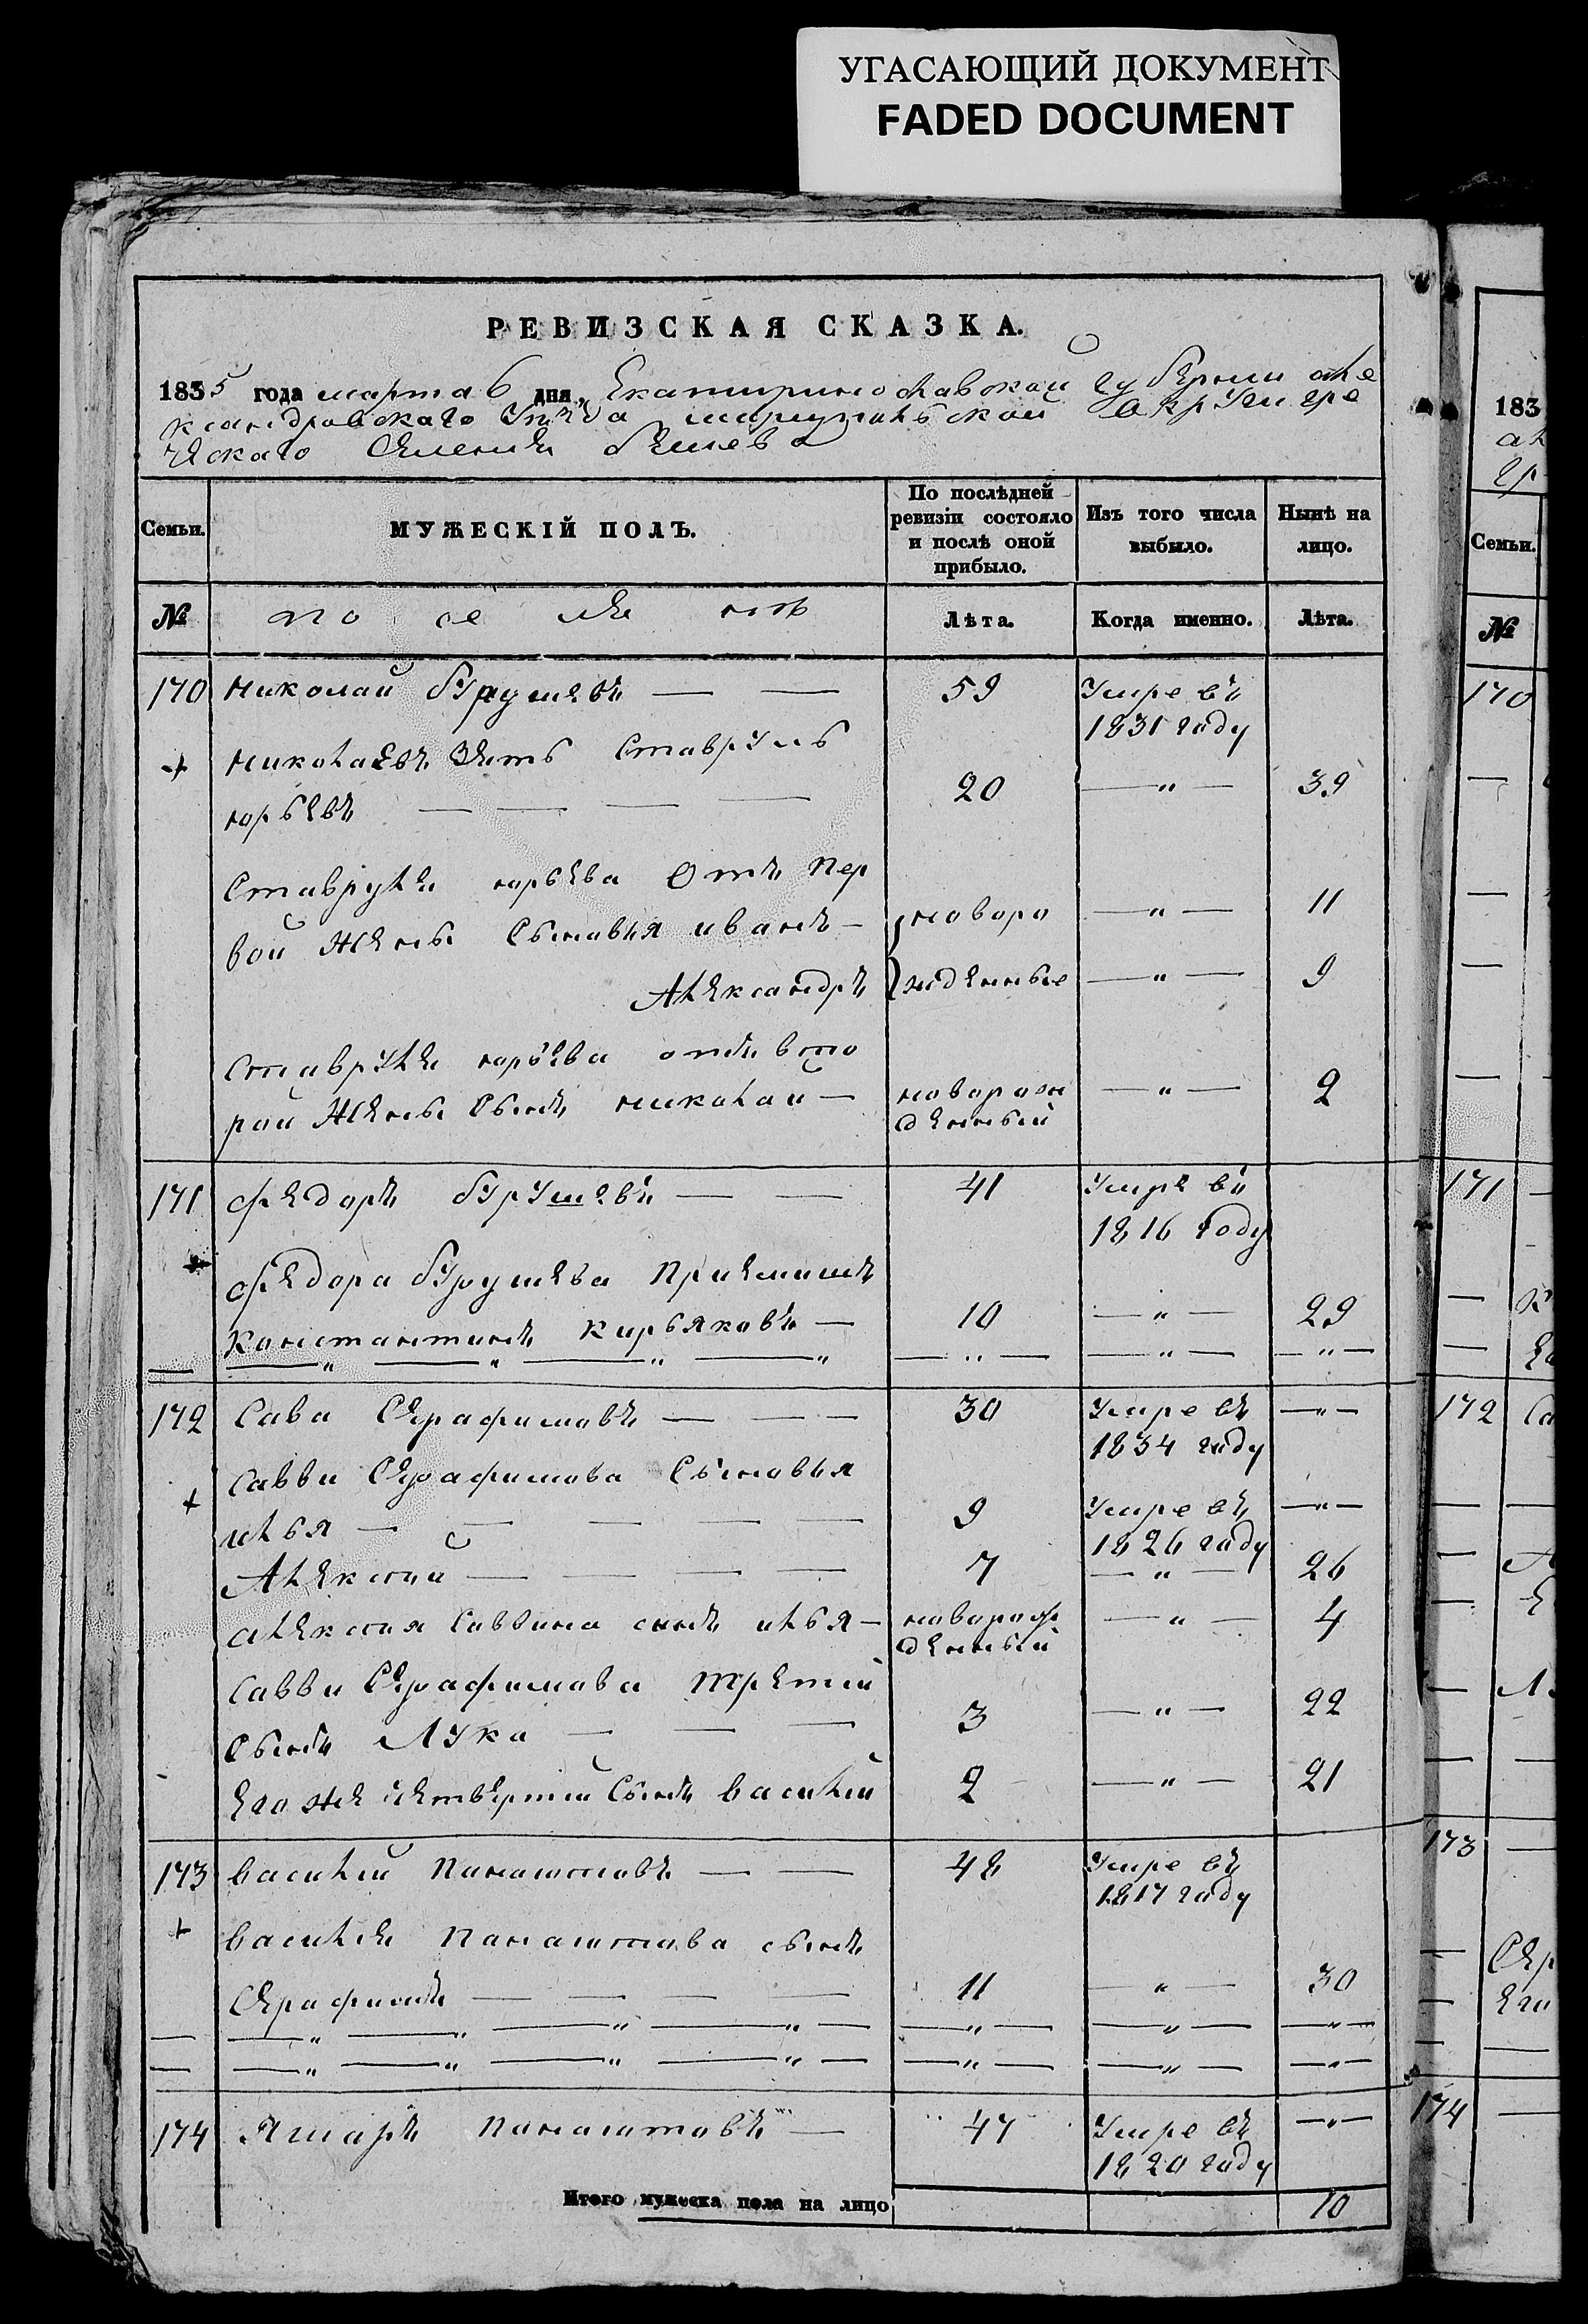 УГАСАЮЩИЙ ДОКУМЕНТ
FADED DOCUMENT
РЕВИЗСКАЯ СКАЗКА.
1835 года марта 6 дня, Екатиринославской губернии але
ксандровскаго уѣзда мариупольской округи гре
ческаго селения бешева
Семьи. МУЖЕСКІЙ ПОЛЪ. По послѣдней ревизіи состояло и послѣ оной прибыло. Изъ того числа выбыло. Нынѣ на лицо.
№ поселяне Лѣта. Когда именно. Лѣта.
170 николай бурушевъ — — 59 Умре въ
1831 году
+ николаевъ зять Ставруль
юрьевъ — — — — 20 — " — 39
Ставруля юрьева Отъ пер
вой жены сыновья иванъ — новоро — " — 11
Александръ жденные — " — 9
Ставруля юрьева отъ вто
рой жены сынъ николай — новорож — " — 2
денный
171 Федоръ бурушевъ — — 41 Умре въ
1816 году
+ Федора бурушева приемишъ
Константинъ кирьяковъ — 10 — " — 29
— — " — " — " — " — " — — " — — " —
172 Сава Серафимовъ — — — 30 Умре въ — " —
1834 году
+ Савви Серафимова сыновья
илья — — — — — 9 Умре въ — " —
1826 году
Алексий — — — — 7 — " — 26
алексия саввина синъ илья — новорож — " — 4
денный
Савви Серафимова третий
сынъ Лука — — — 3 — " — 22
его же четвертий сынъ василий 2 — " — 21
173 василий панаиотовъ — — 48 Умре въ
1817 году
+ василия панаиотова сынъ
Серафимъ — — — — 11 — " — 30
— — " — " — " — " — — " — — " — — " —
— — " — " — " — " — — " — — " — — " —
174 панаиотовъ — 47 Умре въ — " —
1820 году
Итого мужеска пола на лицо 10
183
Семьи.
№
170
171
172
173
174